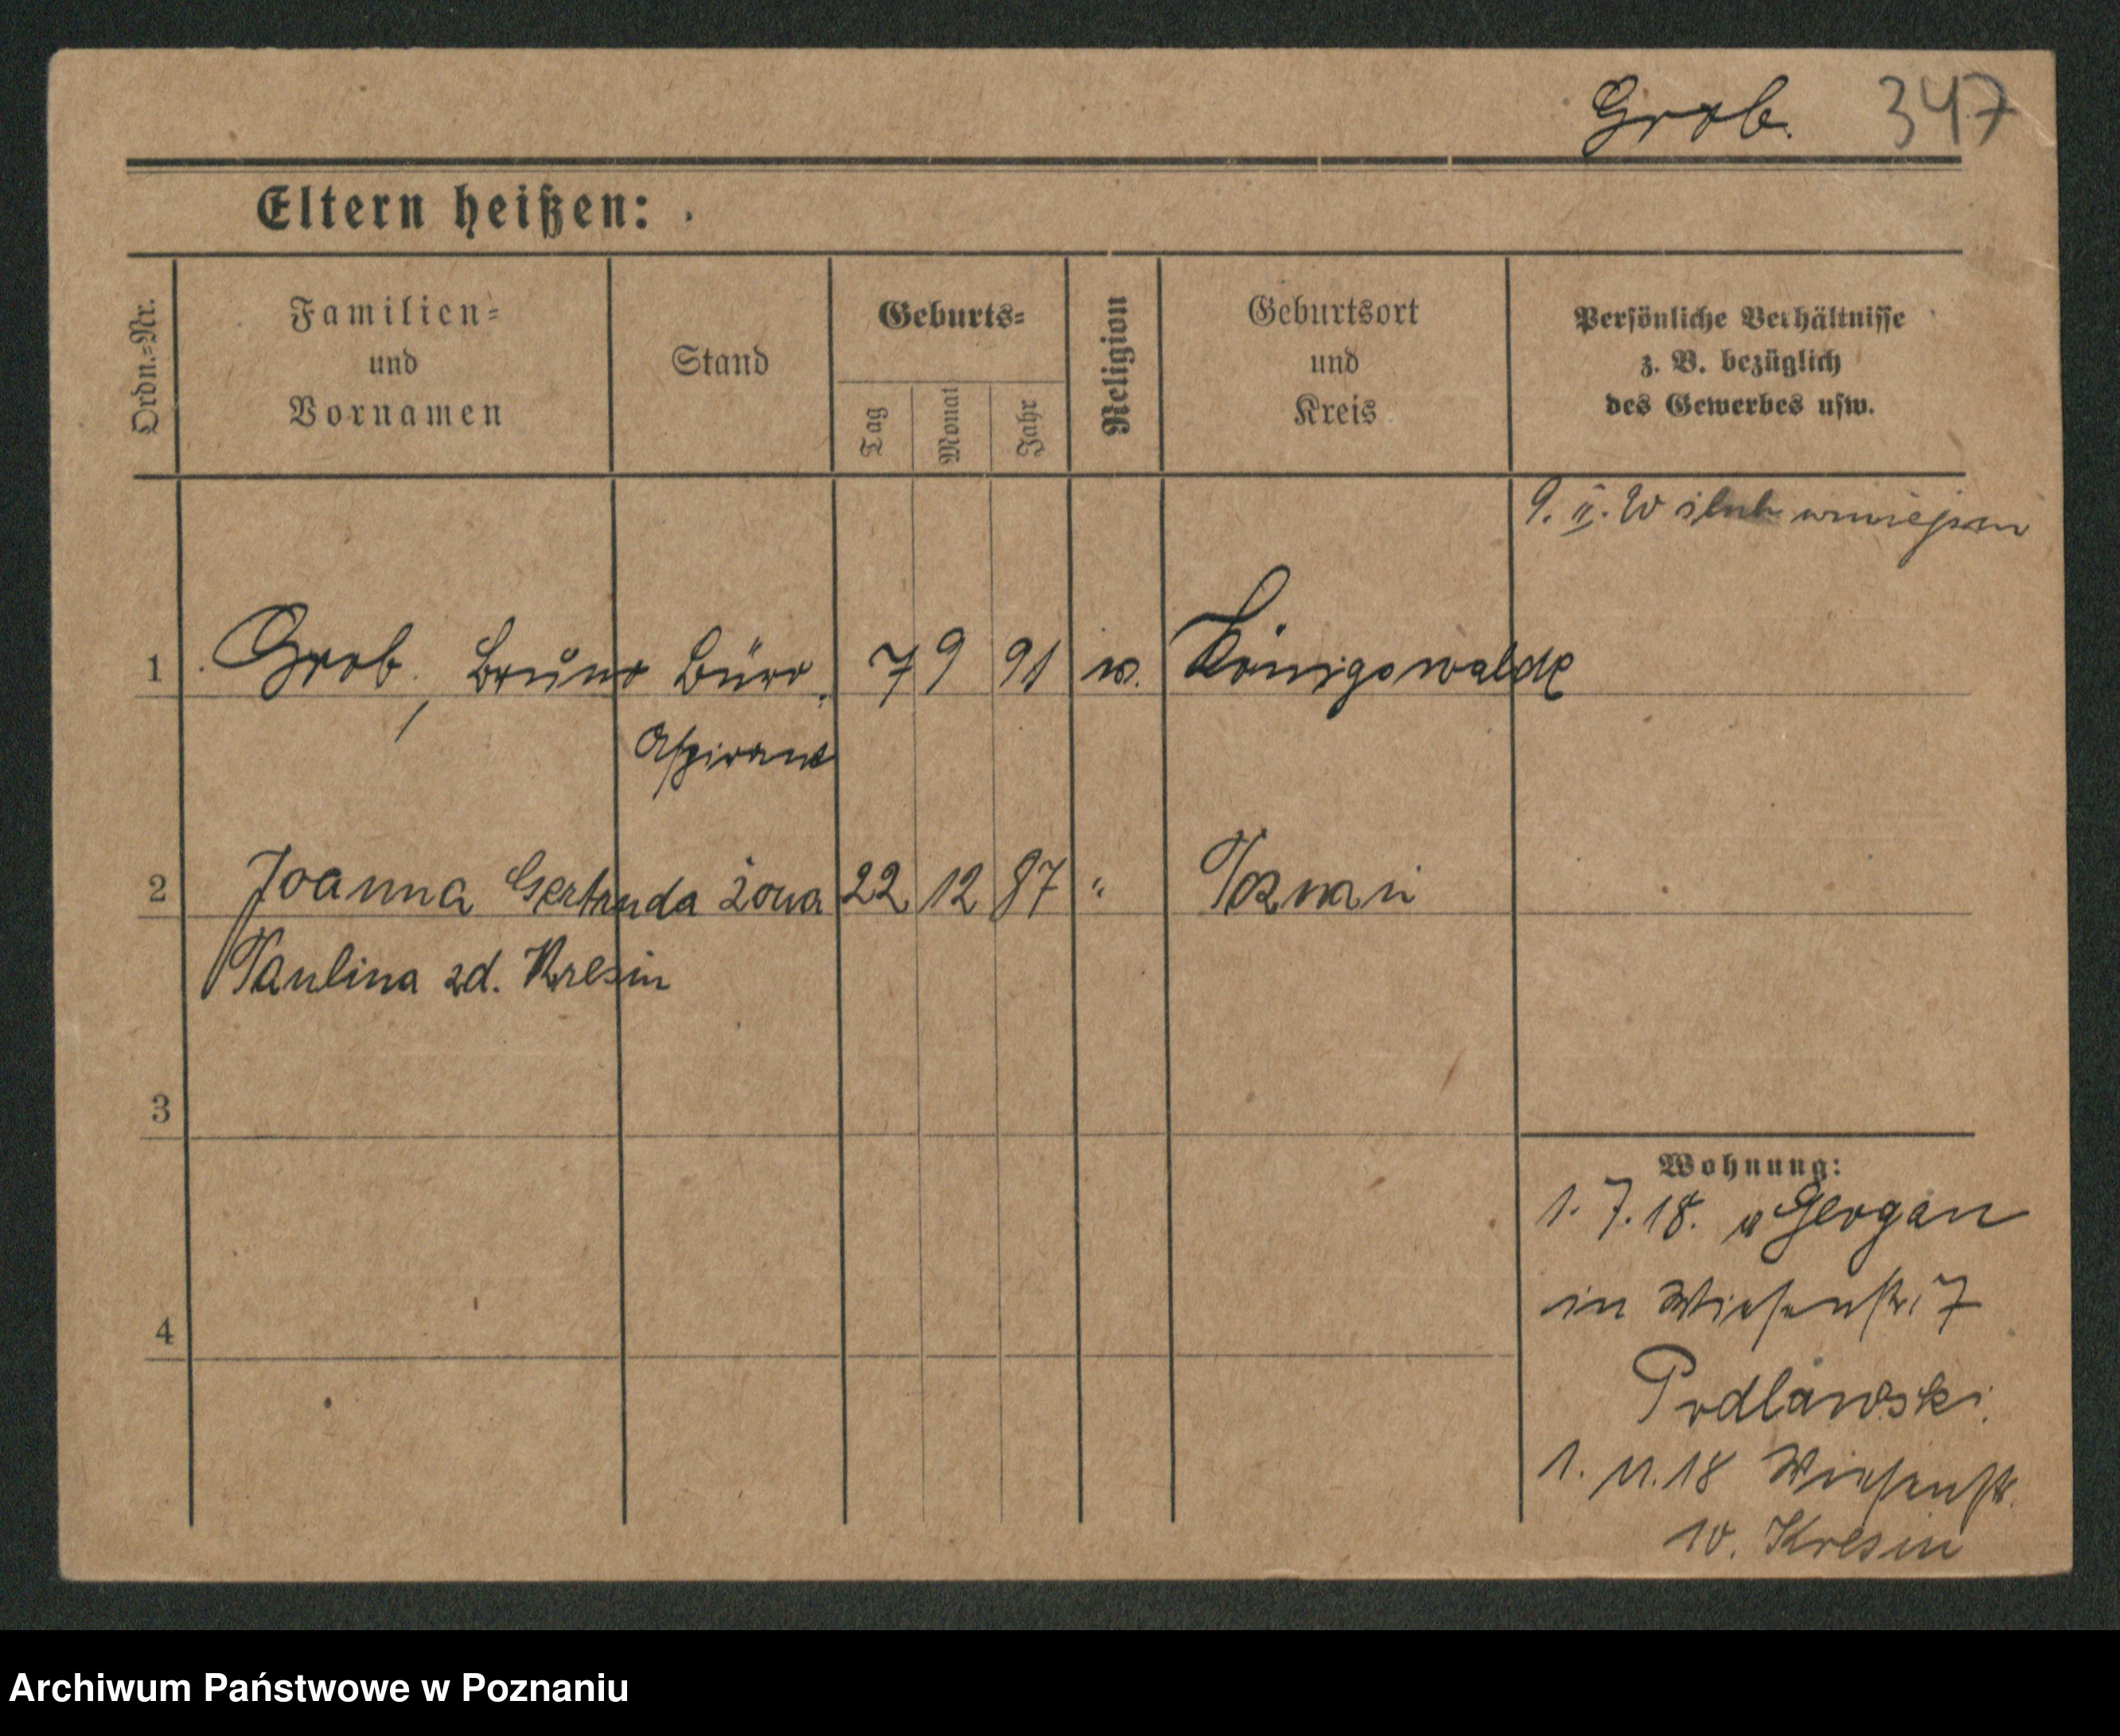 Grob. 347
Eltern heißen:
Ordn.-Nr.
Familien-
und
Vornamen
Stand
Geburts-
Tag
Monat
Jahr
Religion
Geburtsort
und
Kreis
Persönliche Verhältnisse
z. B. bezüglich
des Gewerbes usw.
9. II. 20 ślub
1 Grob, Bruno Büro 7 9 91 Königswalde
Aspirant
2 Joanna Gertruda żona 22 12 87 " Poznań
Paulina zd. Kresin
3
4
Wohnung:
1. 7. 18. v Glogau
in Wiesenstr. 7
Podlawski.
1. 11. 18 Wiesenstr.
10. Kresin
Archiwum Państwowe w Poznaniu